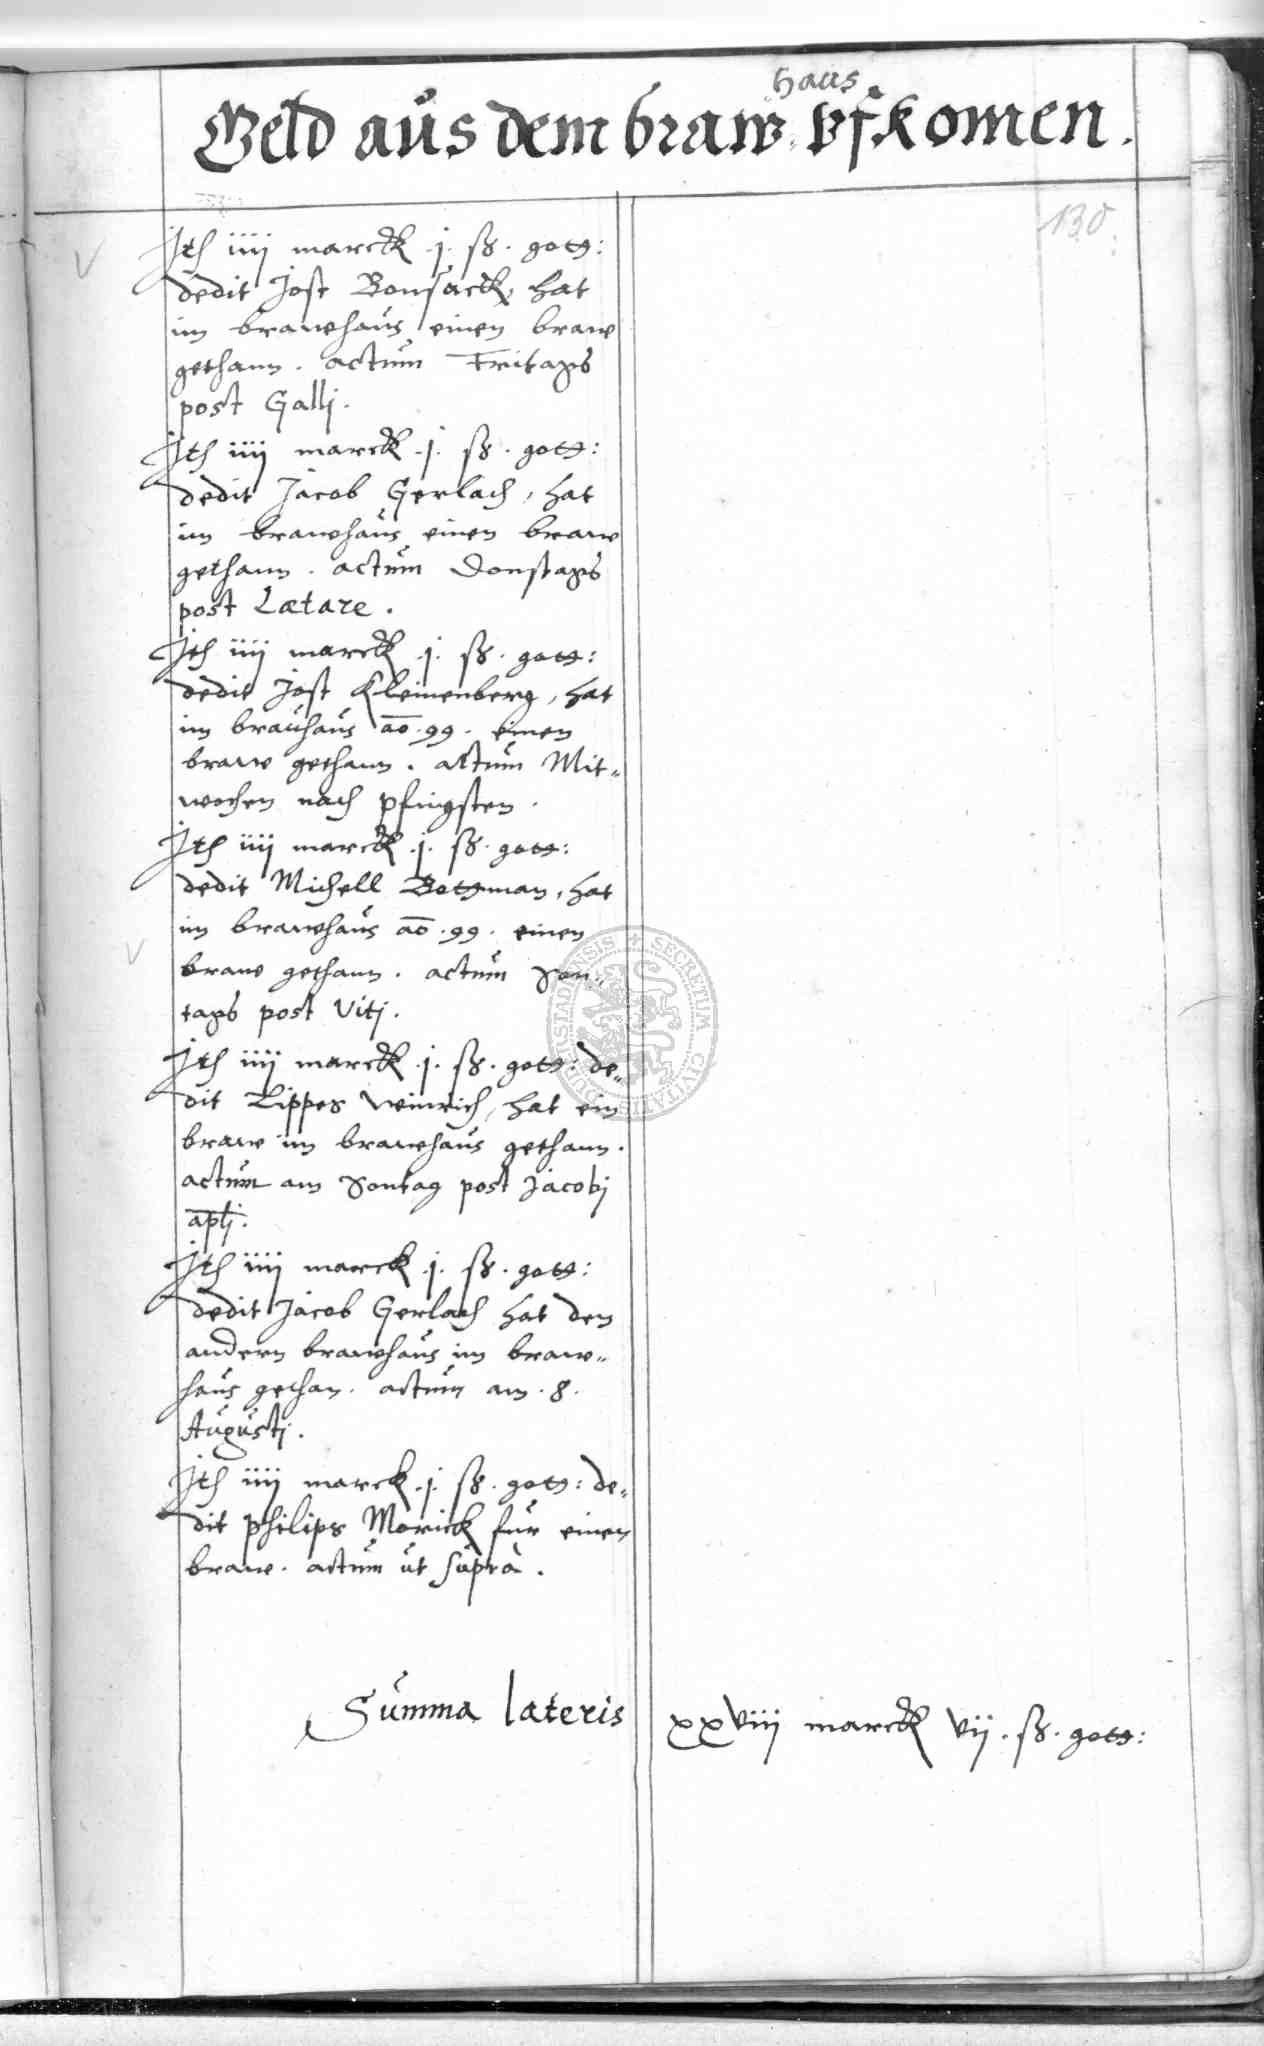 haus
Geld aus dem braw vfkomen.
130
Ite iiij marck .j. ß. gotg:
dedit Jost Bonsack, hat
im brawhaus einen braw
gethann. actum Fritags
post Galli.
Ite iiij marck .j. ß. gotg:
dedit Jacob Gerlach, hat
im brawhaus einen braw
gethann. actum Donstags
post Lætare.
Ite iiij marck .j. ß. gotg:
dedit Jost Kleinenberg, hat
im brauhaus ao .99. einen
braw gethann. actum Mit„
wochen nach pfingsten.
Ite iiij marck .j. ß. gotg:
dedit Michell Botgman, hat
im brawhaus ao .99. einen
braw gethann. actum Son„
tags post Viti.
Ite iiij marck .j. ß. gotg: de„
dit Lippes Weinrich, hat ein
braw im brawhaus gethann.
actum am Sontag post Jacobj
aplj.
Ite iiij marck .j. ß. gotg:
dedit Jacob Gerlach hat den
andern brawhaus im braw„
haus gethan. actum am .8.
Augustj.
Ite iiij marck .j. ß. gotg: de„
dit philips Morick fur einen
braw. actum ut supra.
Summa lateris xxviij marck vij. ß. gotg:
SECRETUM CIVITATIS DUDERSTADIENSIS